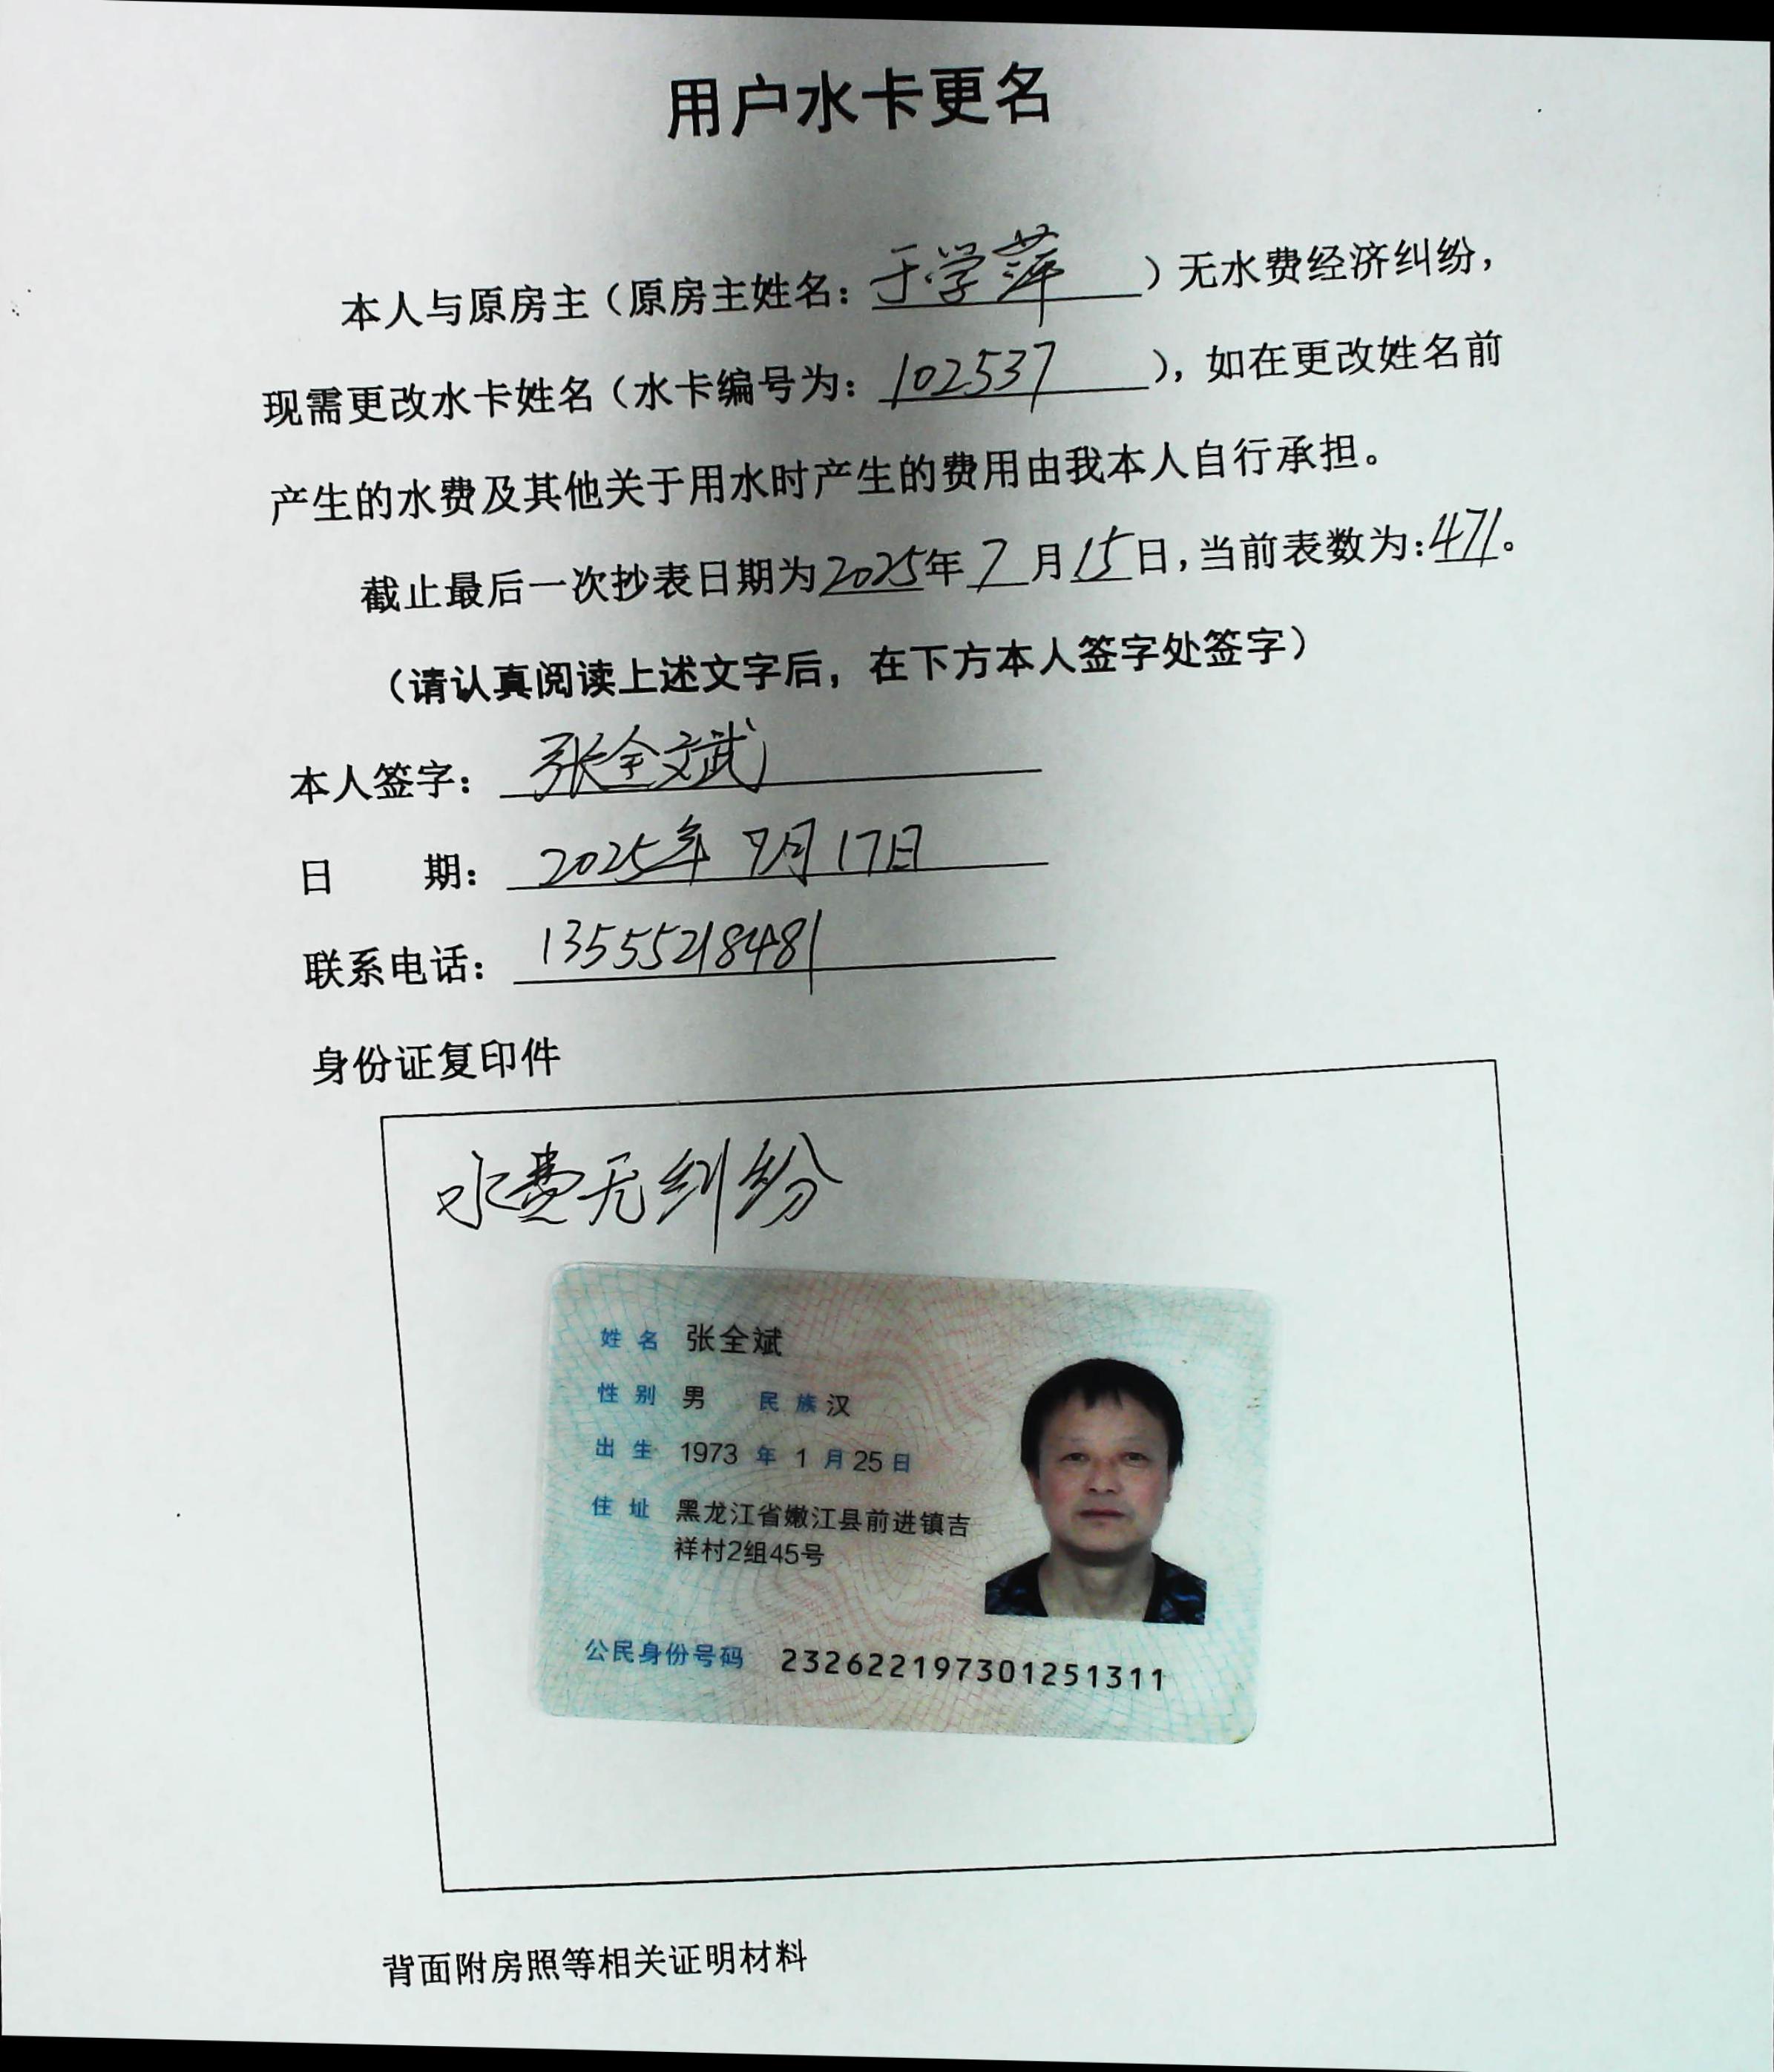 用户水卡更名
本人与原房主（原房主姓名：于学萍）无水费经济纠纷，
现需更改水卡姓名（水卡编号为：102537），如在更改姓名前
产生的水费及其他关于用水时产生的费用由我本人自行承担。
截止最后一次抄表日期为2025年7月15日，当前表数为：471。
（请认真阅读上述文字后，在下方本人签字处签字）
本人签字：张全斌
日 期：2025年9月17日
联系电话：13555218481
身份证复印件
水费无纠纷
姓名 张全斌
性别 男 民族 汉
出生 1973 年 1 月 25 日
住址 黑龙江省嫩江县前进镇吉
祥村2组45号
公民身份号码 232622197301251311
背面附房照等相关证明材料